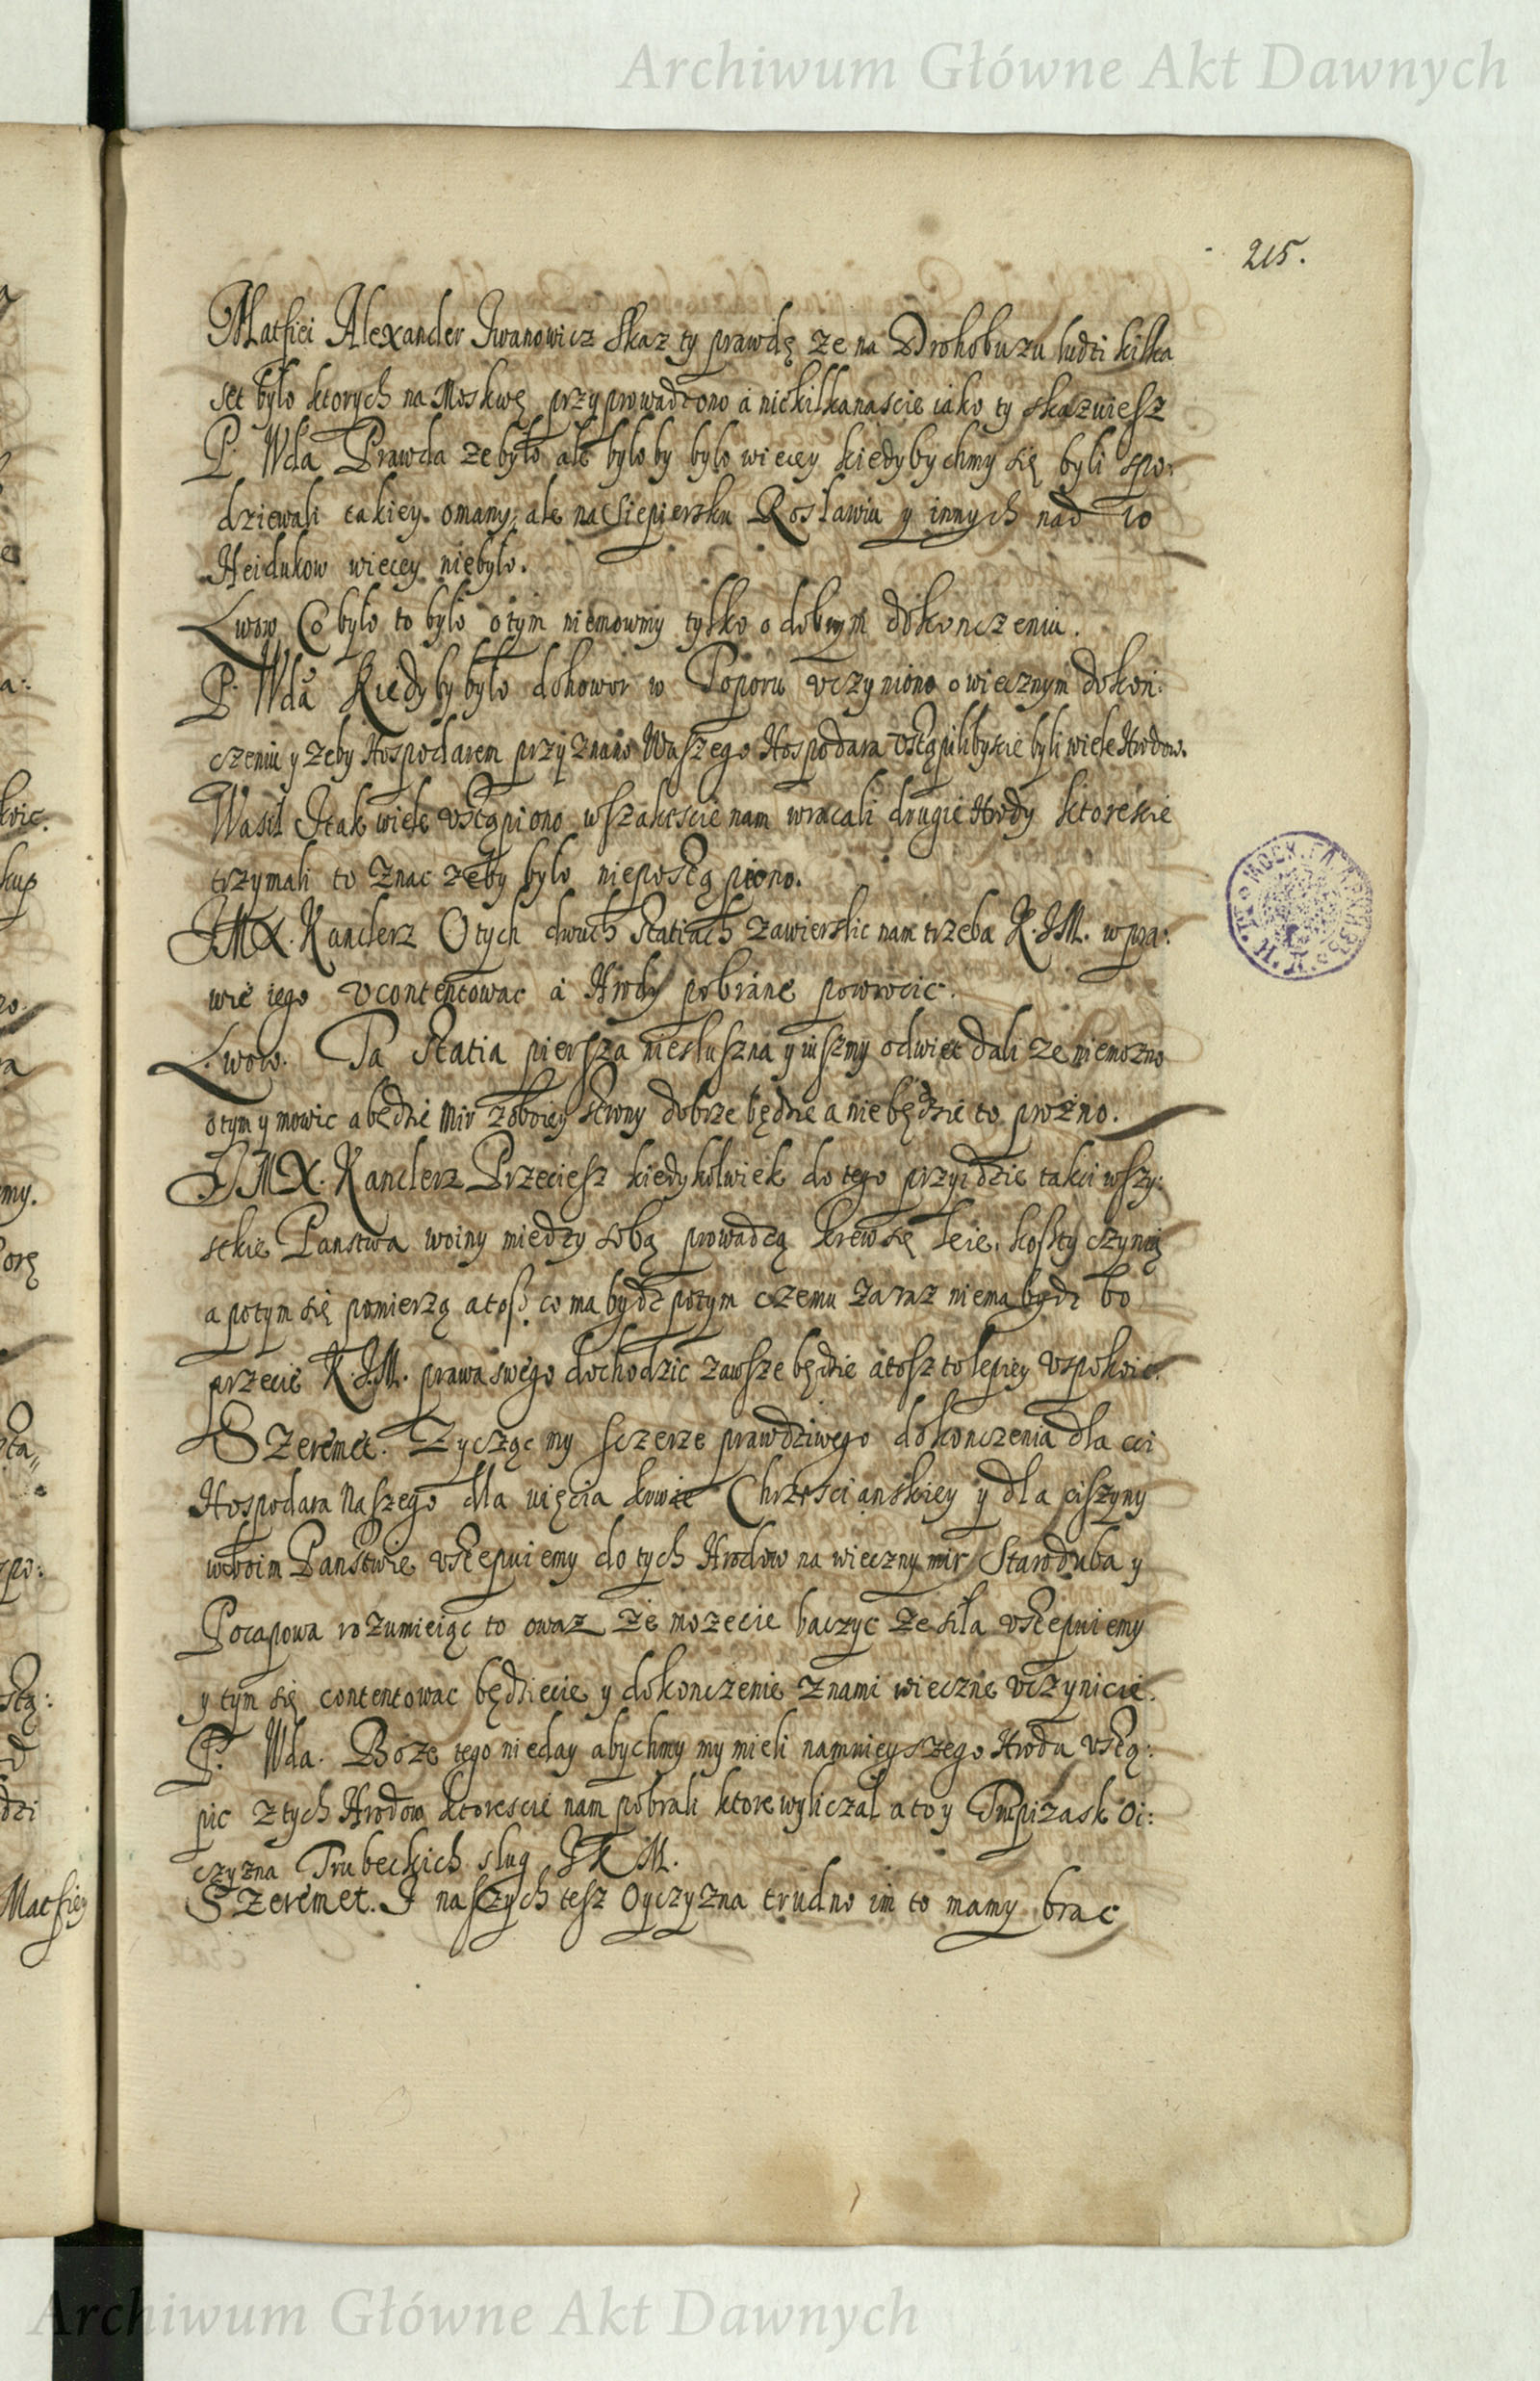 Archiwum Główne Akt Dawnych
215.
Matfiei Alexander Iwanowicz skaz ty prawdę ze na Drohobuzu ludzi kilka
set było ktorych na Moskwę przyprowadzono a nie kilkanascie iako ty skazuiesz
P. Wda Prawda ze było ale byłoby było wiecey kiedybychmy się byli spo:
dziewali takiey omany, ale na Siepiersku Rosławiu y innych nad 10
Heidukow wiecey niebyło.
Lwow Co było to było o tym niemowmy tylko o dobrym dokonczeniu.
P. Wda Kiedyby było dohowor w Poporu vczyniono o wiecznym dokon:
czeniu y zeby Hospodarem przyznano Waszego Hospodara vstąpilibyscie byli wiele Hrodow.
Wasil I tak wiele vstąpiono wszakescie nam wracali drugie Hrody ktorescie
trzymali to znac zeby było niepostąpiono.
JMX. Kanclerz O tych dwuch Statiach zawierslic nam trzeba K. JM. w pra:
wie iego vcontentowac a Hrody pobrane powrocic.
Lwow. Ta Statia pierwsza niesłuszna y iuszmy odwiet dali ze niemozno
o tym y mowic a będzie mir z oboiey strony dobrze będzie a nie będzie to prozno.
JMX. Kanclerz Przeciesz kiedykolwiek do tego przyidzie takci wszy:
stkie Panstwa woiny miedzy sobą prowadzą krew się leie, koszty czynią
a potym się pomierzą a tosz co ma bydz potym czemu zaraz niema bydz bo
przecie K. JM. prawa swego dochodzic zawsze będzie a tosz to lepiey vspokoic.
Szeremet. Zycząc my sczerze prawdziwego dokonczenia dla cci
Hospodara Naszego dla uięcia krwie Chrzescianskiey y dla ciszyny
w oboim Panstwie vstepuiemy do tych Hrodow na wieczny mir Staroduba y
Pocapowa rozumieiąc to o was ze mozecie baczyc ze siła vstepuiemy
y tym się contentowac będziecie y dokonczenie z nami wieczne vczynicie.
P. Wda. Boze tego nieday abychmy my mieli namnieyszego Hrodu vstą:
pic z tych Hrodow ktorescie nam pobrali ktore wyliczał a to y Trupizask Oi:
czyzna Trubeckich slug J K M.
Szeremet. I naszych tesz Oyczyzna trudno im to mamy brac
Matfiey
Archiwum Główne Akt Dawnych